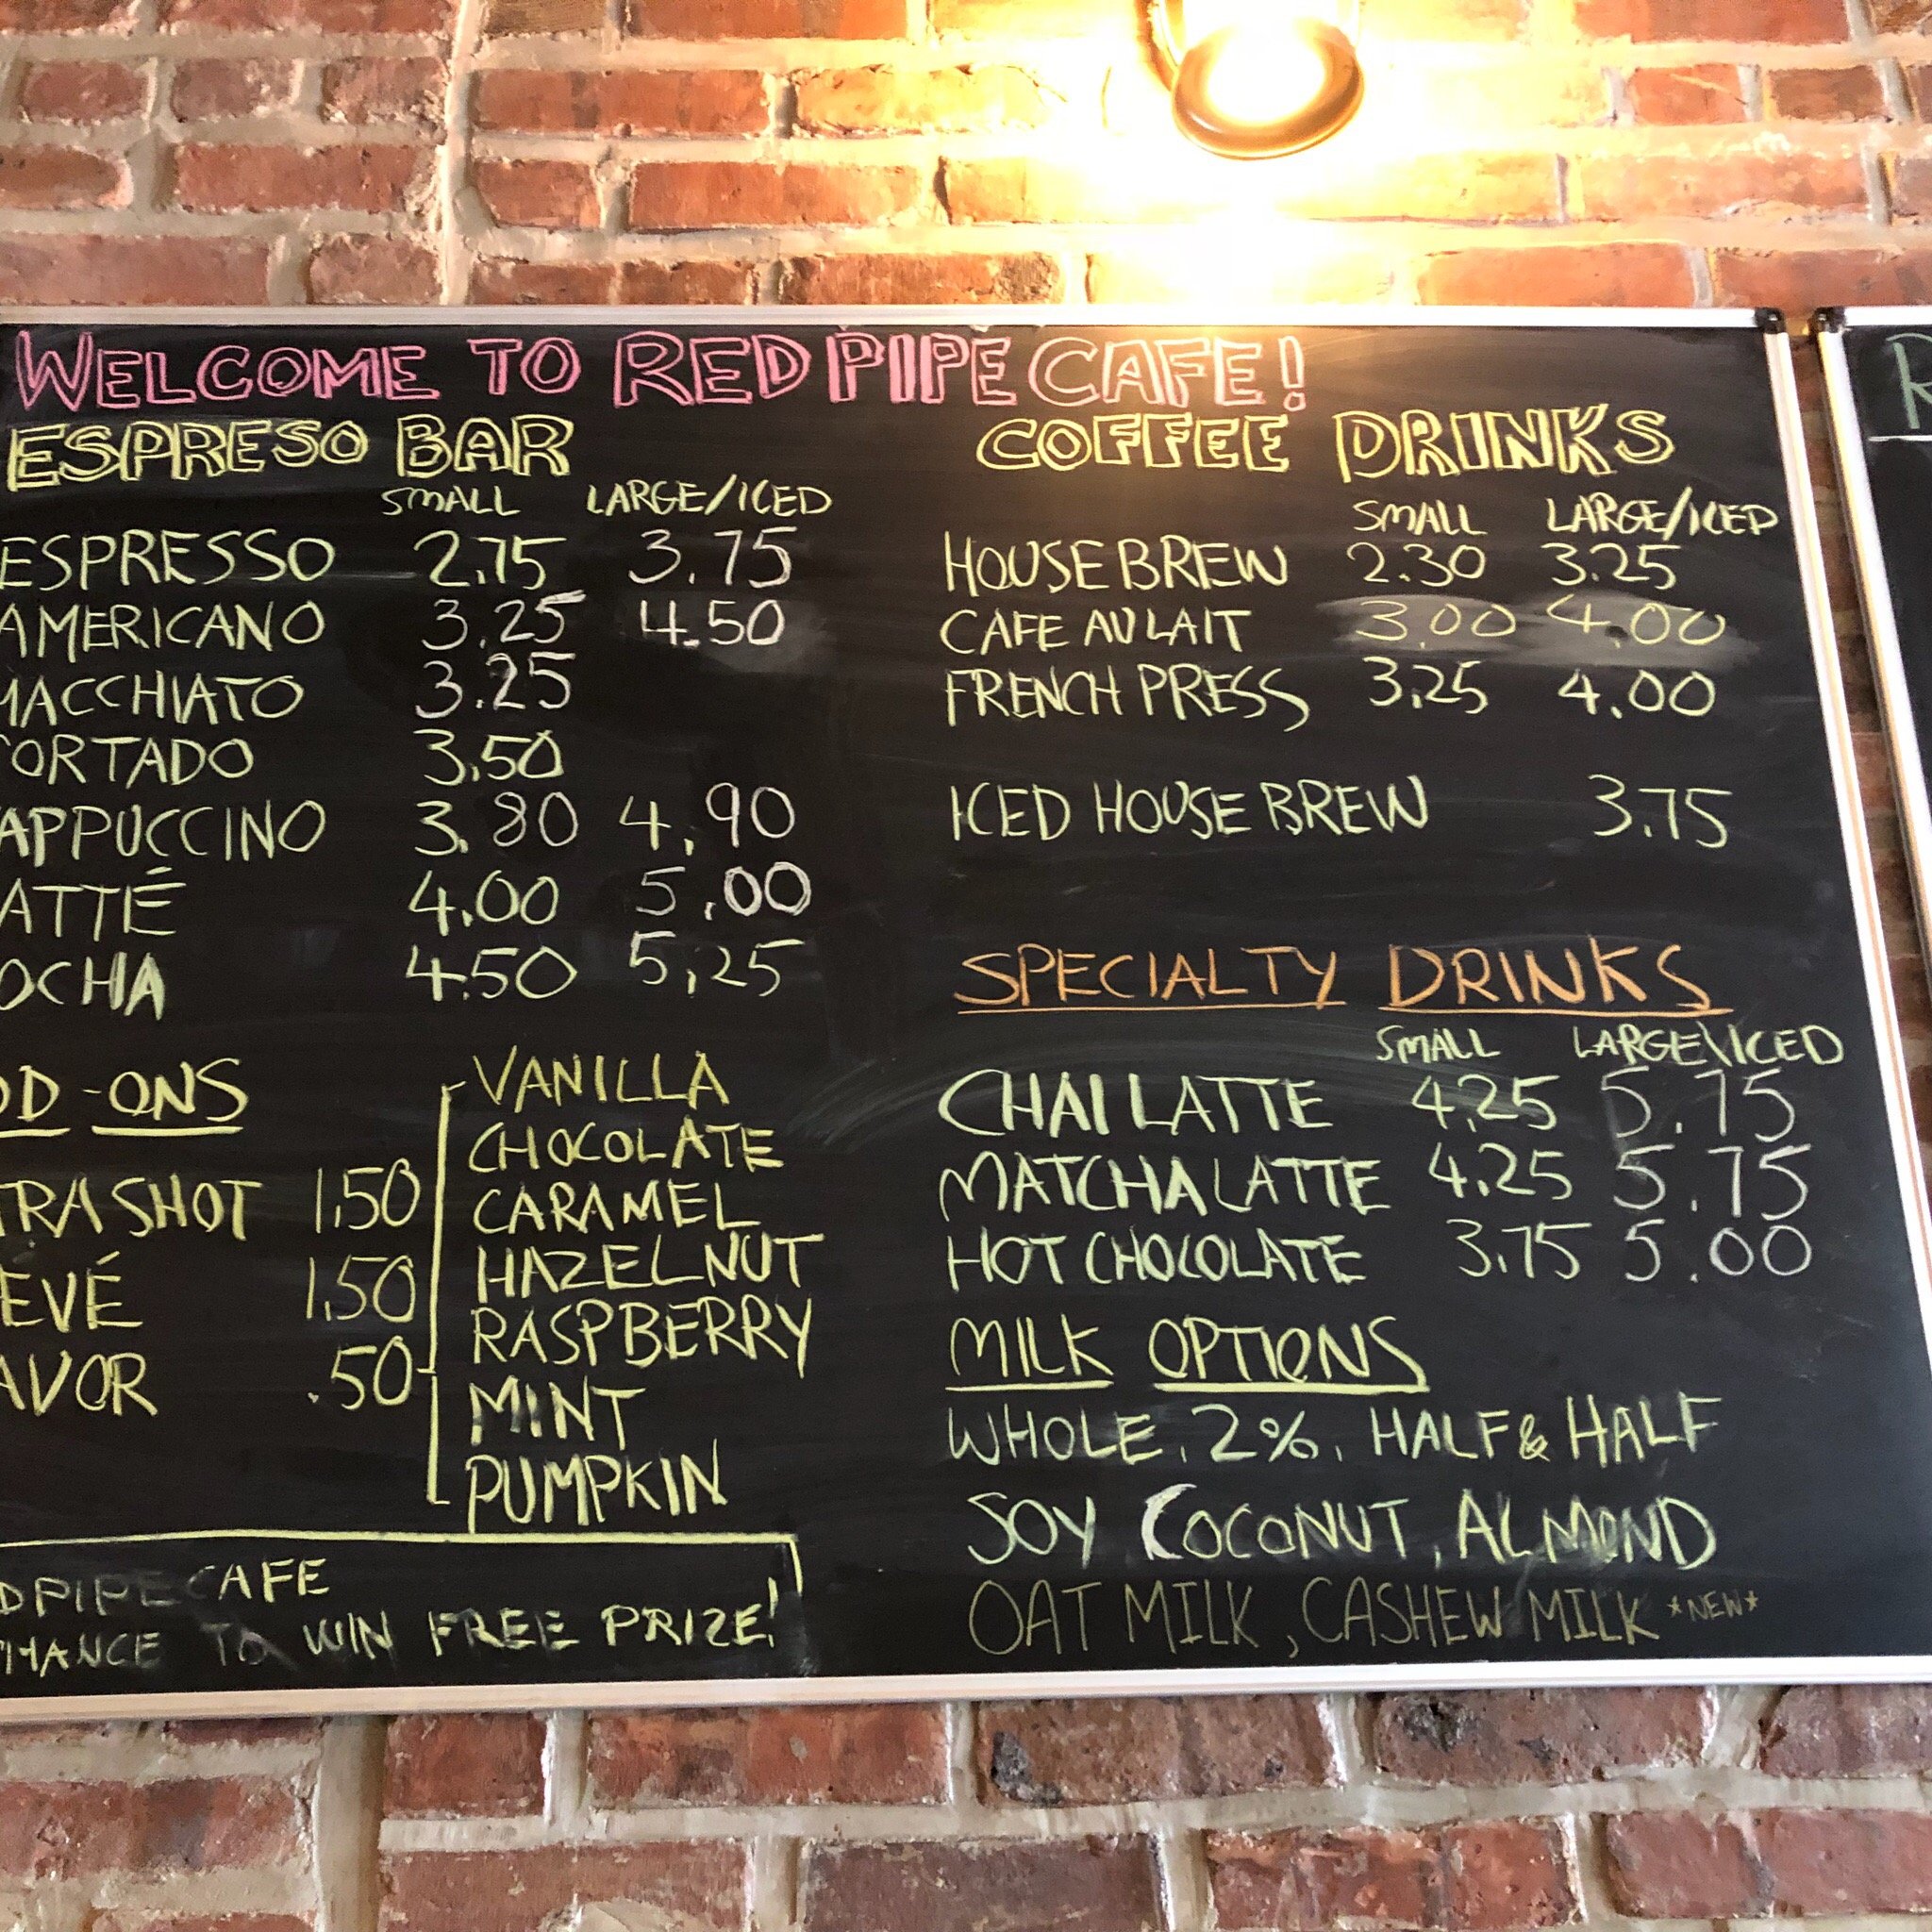 WELCOME TO RED PIPE CAFE!
ESPRESO BAR
SMALL LARGE/ICED
ESPRESSO 2.75 3.75
AMERICANO 3.25 4.50
MACCHIATO 3.25
CORTADO 3.50
CAPPUCCINO 3.80 4.90
LATTÉ 4.00 5.00
MOCHA 4.50 5.25
ADD-ONS
EXTRA SHOT 1.50
BREVÉ 1.50
FLAVOR .50
VANILLA
CHOCOLATE
CARAMEL
HAZELNUT
RASPBERRY
MINT
PUMPKIN
REDPIPECAFE
CHANCE TO WIN FREE PRIZE!
COFFEE DRINKS
SMALL LARGE/ICED
HOUSE BREW 2.30 3.25
CAFE AU LAIT 3.00 4.00
FRENCH PRESS 3.25 4.00
ICED HOUSE BREW 3.75
SPECIALTY DRINKS
SMALL LARGE\ICED
CHAI LATTE 4.25 5.75
MATCHA LATTE 4.25 5.75
HOT CHOCOLATE 3.75 5.00
MILK OPTIONS
WHOLE, 2%, HALF & HALF
SOY COCONUT, ALMOND
OAT MILK, CASHEW MILK *NEW*
R